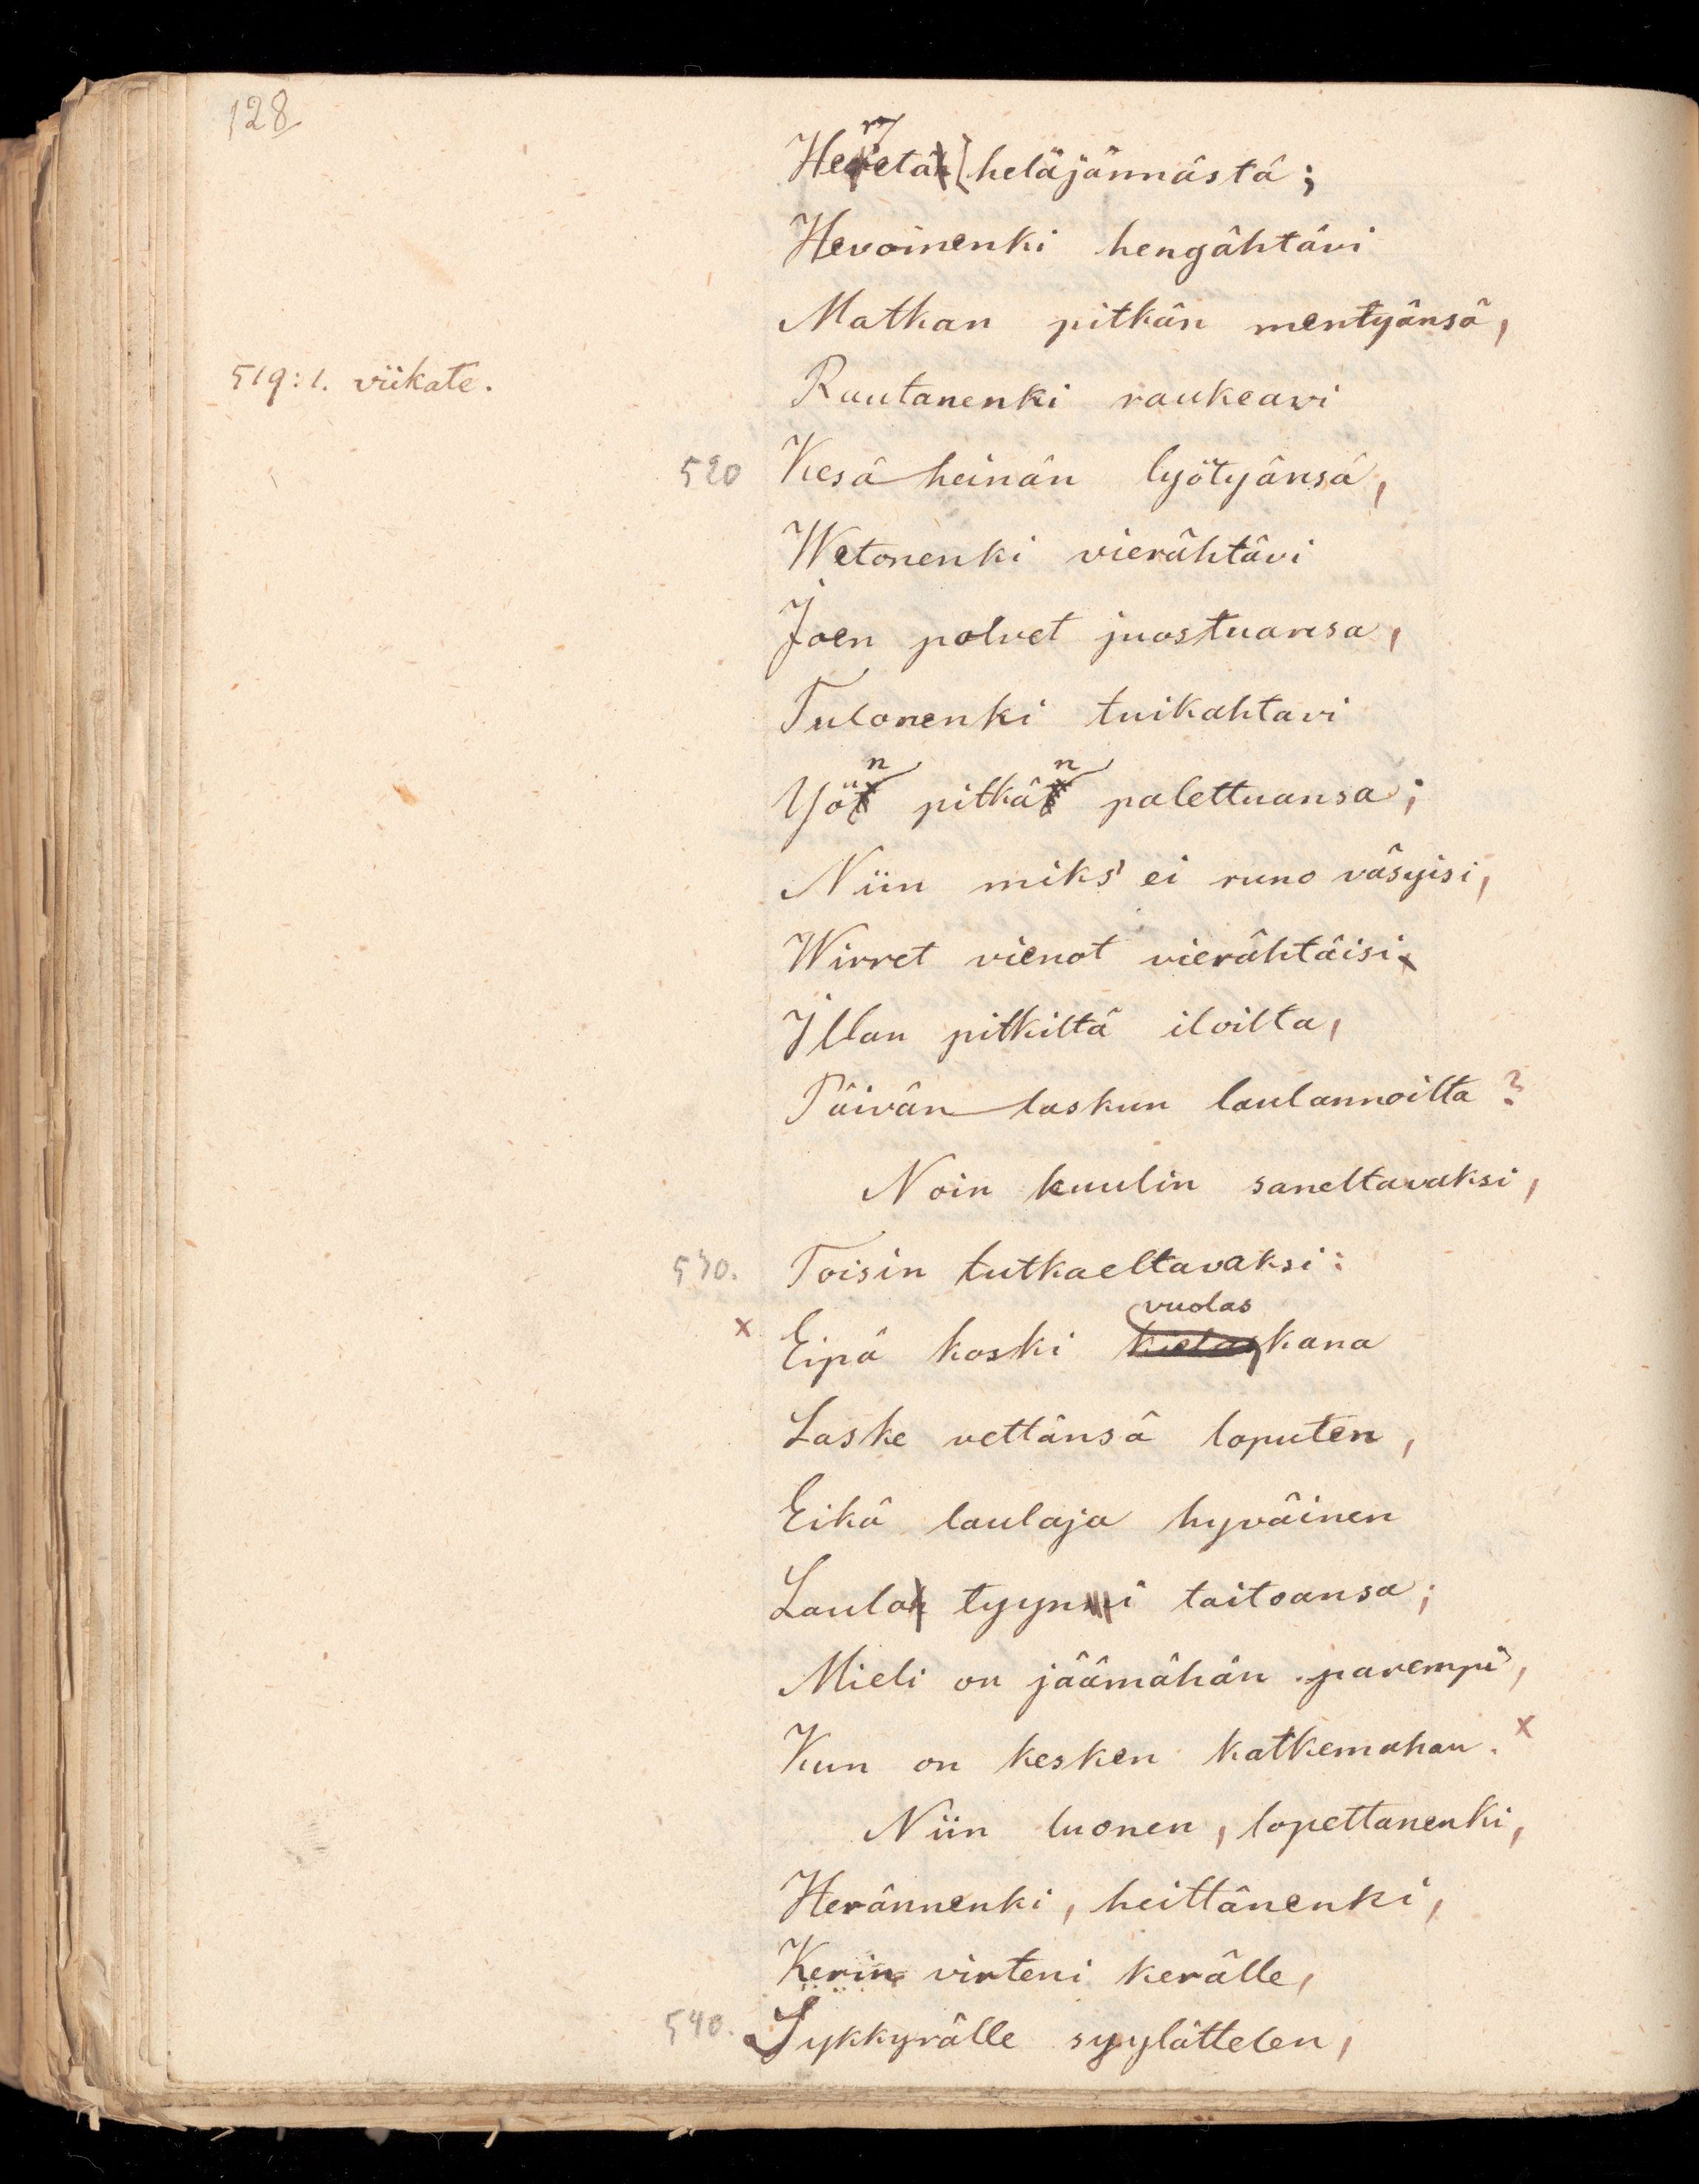 128
Heretä heläjännästä;
Hevoinenki hengähtävi
Matkan pitkän mentyänsä,
519:1. viikate.
Rautanenki raukeavi
520 Kesä heinän lyötyänsä,
Wetonenki vierähtävi
Joen polvet juostuansa,
Tulonenki tuikahtavi
Yön pitkän palettuansa;
Niin miks' ei runo väsyisi,
Wirret vienot vierähtäisi
Illan pitkiltä iloilta,
Päivän laskun laulannoilta?
Noin kuulin saneltavaksi,
530. Toisin tutkaeltavaksi:
vuolas
x Eipä koski kielaskana
Laske vettänsä loputen,
Eikä laulaja hyväinen
Laula tyynni taitoansa;
Mieli on jäämähän parempi,
Kun on kesken katkemahan. x
Niin luonen, lopettanenki,
Herännenki, heittänenki,
Kerin virteni kerälle,
540. Sykkyrälle syylättelen,